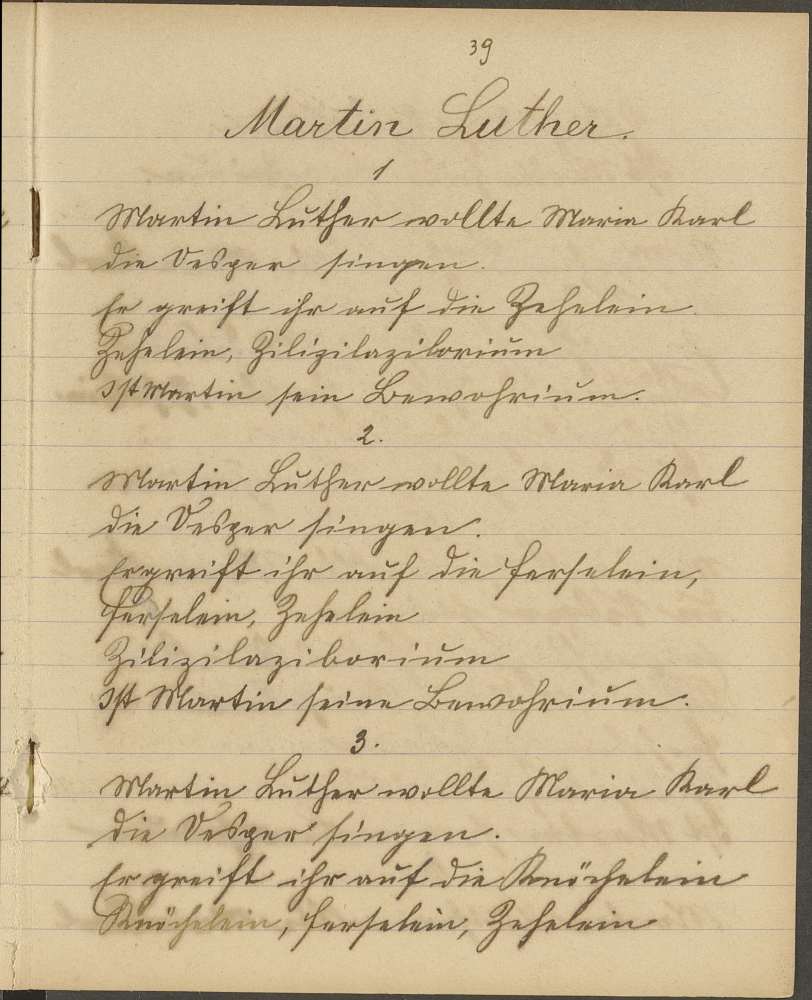 39
Martin Luther.
1
Martin Luther wollte Maria Karl
die Vesper singen.
Er greift ihr auf die Zehelein.
Zehelein, Zilizilaziborium
Ist Martin sein Bewohrium.
2.
Martin Luther wollte Maria Karl
die Vesper singen.
Er greift ihr auf die Ferselein,
Ferselein, Zehelein
Zilizilaziborium
Ist Martin seine Bewohrium.
3.
Martin Luther wollte Maria Karl
die Vesper singen.
Er greift ihr auf die Knöchelein
Knöchelein, Ferselein, Zehelein